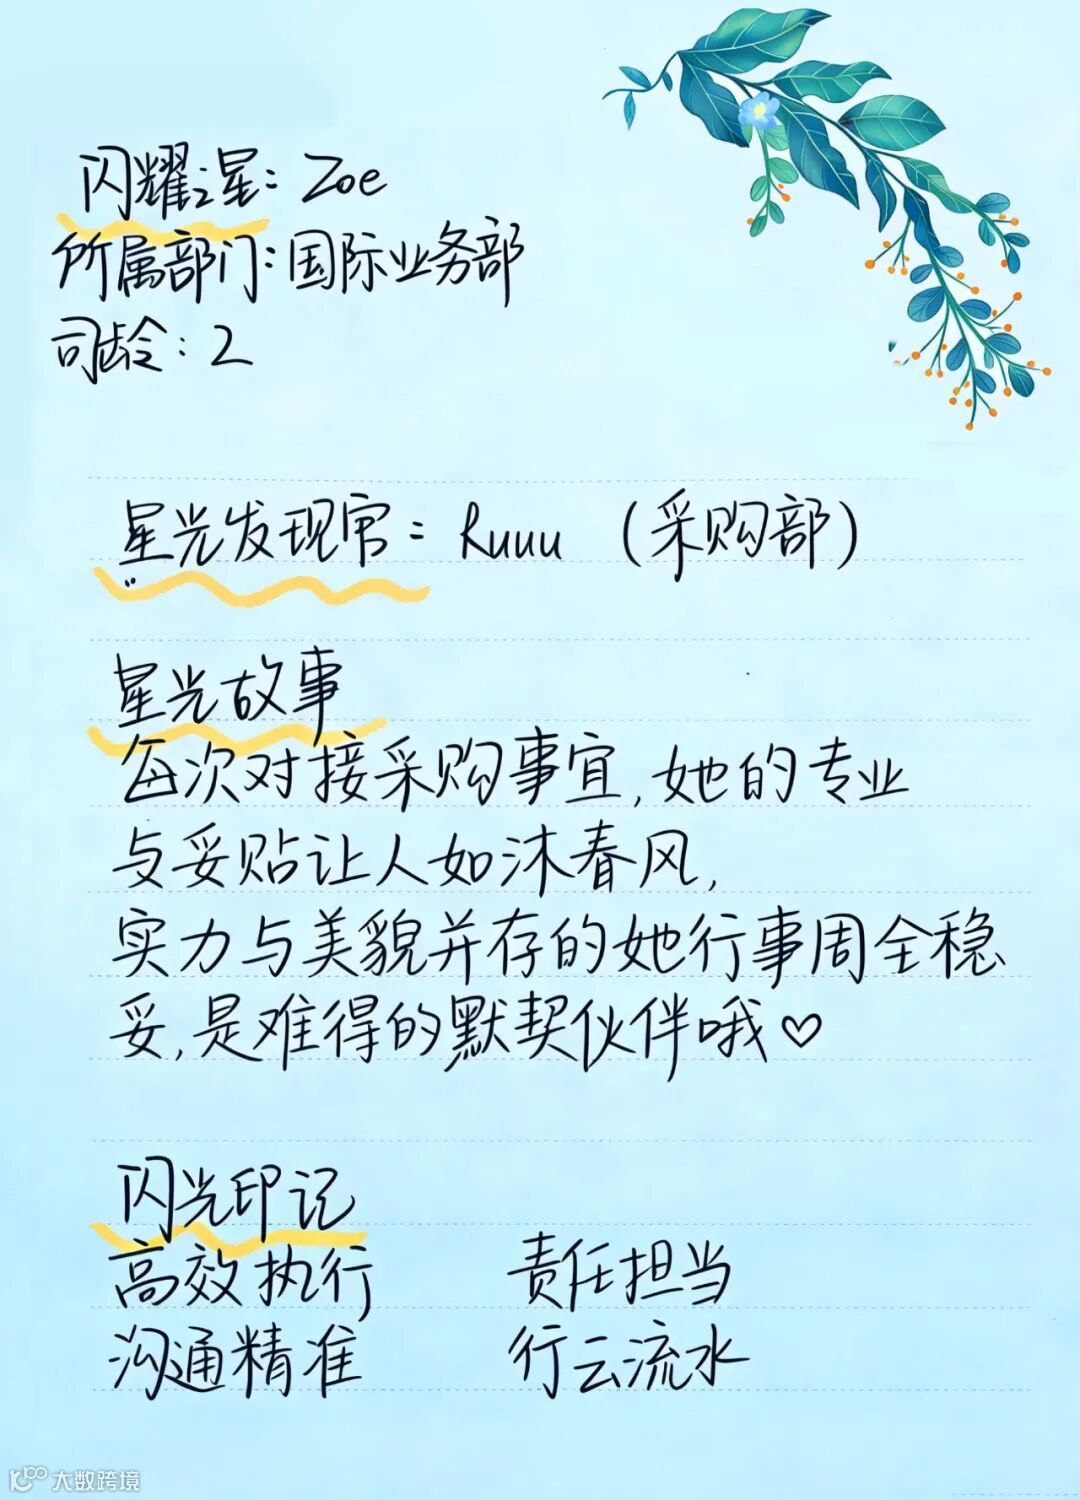 闪耀之星：Zoe
所属部门：国际业务部
司龄：2
星光发现官：Ruuu （采购部）
星光故事
每次对接采购事宜，她的专业
与妥贴让人如沐春风，
实力与美貌并存的她行事周全稳
妥，是难得的默契伙伴哦♡
闪光印记
高效执行 责任担当
沟通精准 行云流水
大数跨境